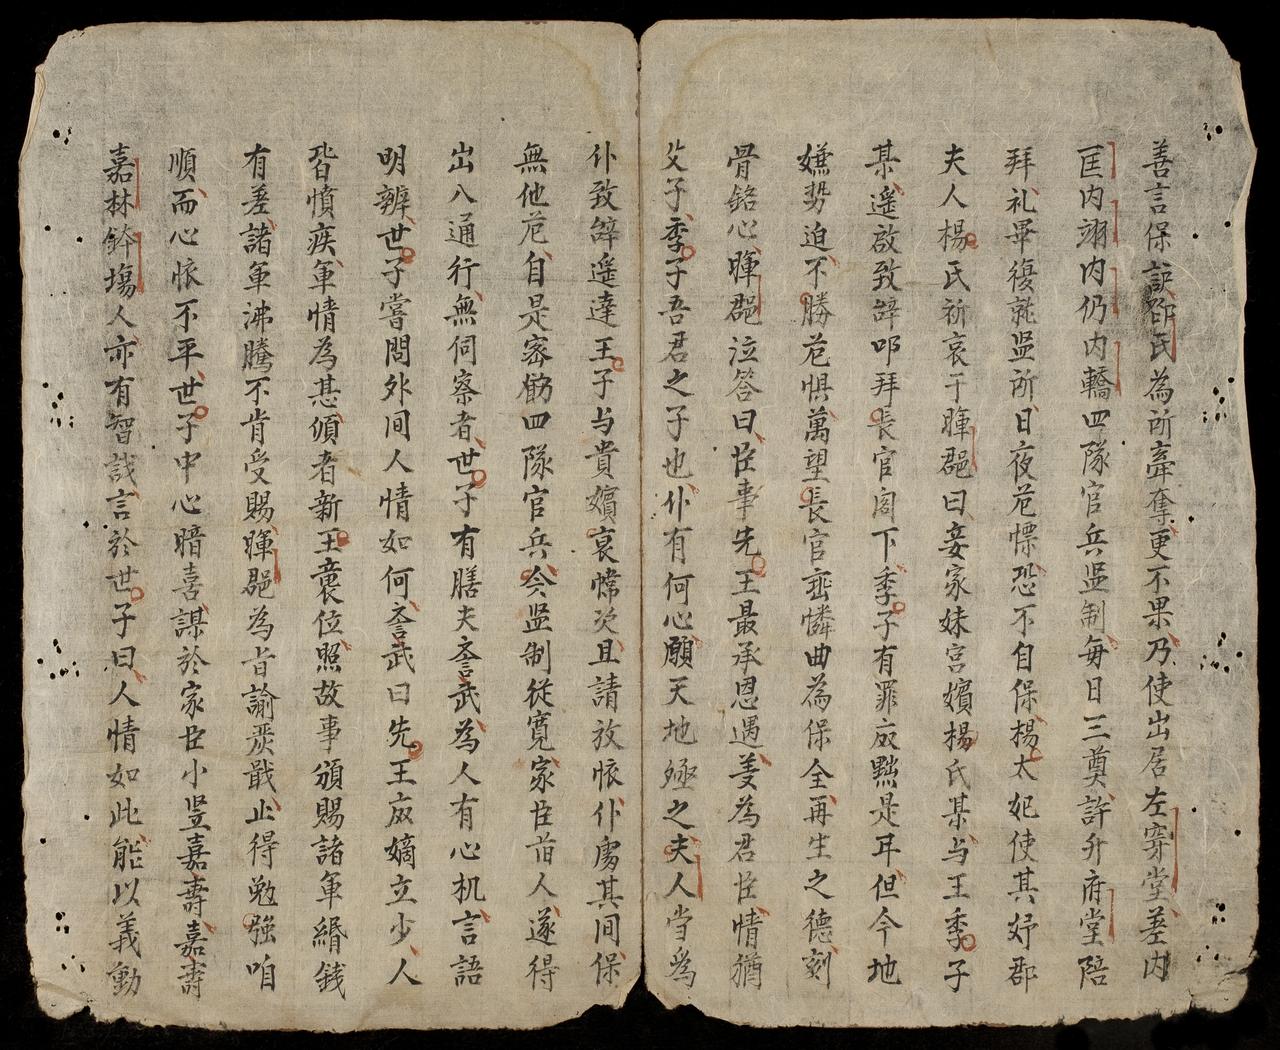 善言保訣鄧氏為所牽奪更不果乃使出居左穿堂差內
匡内翊内仍内轎四隊官兵监制每日三奠許升府堂陪
拜礼畢復就监所日夜危慄恐不自保楊太妃使其妤郡
夫人楊氏祈哀于暉郡曰妾家妹宮嬪楊氏某与王季子
某遥啟致辞叩拜長官阁下季子有罪应黜是耳但今地
嫌势迫不勝危惧萬望長官垂憐曲為保全再生之德刻
骨銘心暉郡泣答曰臣事先王最承恩遇義為君臣情猶
父子季子吾君之子也仆有何心願天地殛之夫人当為
仆致辞遥達王子与貴嬪哀情炎且請放懷仆虜其间保
無他危自是密飭四隊官兵今监制從寛家臣首人遂得
出入通行無伺察者世子有膳夫誊武為人有心机言語
明辨世子嘗問外间人情如何誊武曰先王廢嫡立少人
皆憤疾軍情為甚傾者新王襲位照故事頒賜諸軍緡銭
有差諸軍沸騰不肯受賜暉郡為旨諭嚴戢止得勉強咱
順而心懷不平世子中心暗喜謀於家臣小竖嘉壽嘉壽
嘉林鉢塲人亦有智識言於世子曰人情如此能以義動